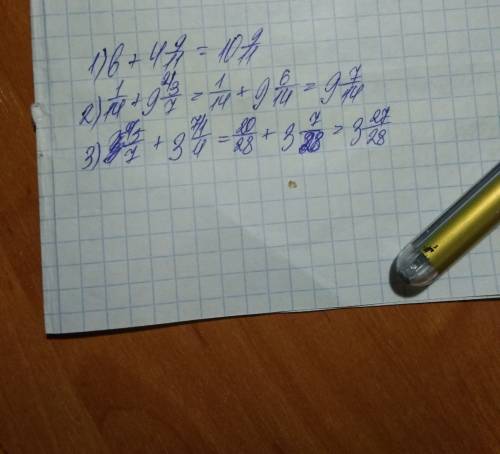 1) 6 + 4 9/11 = 10 9/11
2) 1/14 + 9 3/7 = 1/14 + 9 6/14 = 9 7/14
3) 5/7 + 3 1/4 = 20/28 + 3 7/28 = 3 27/28